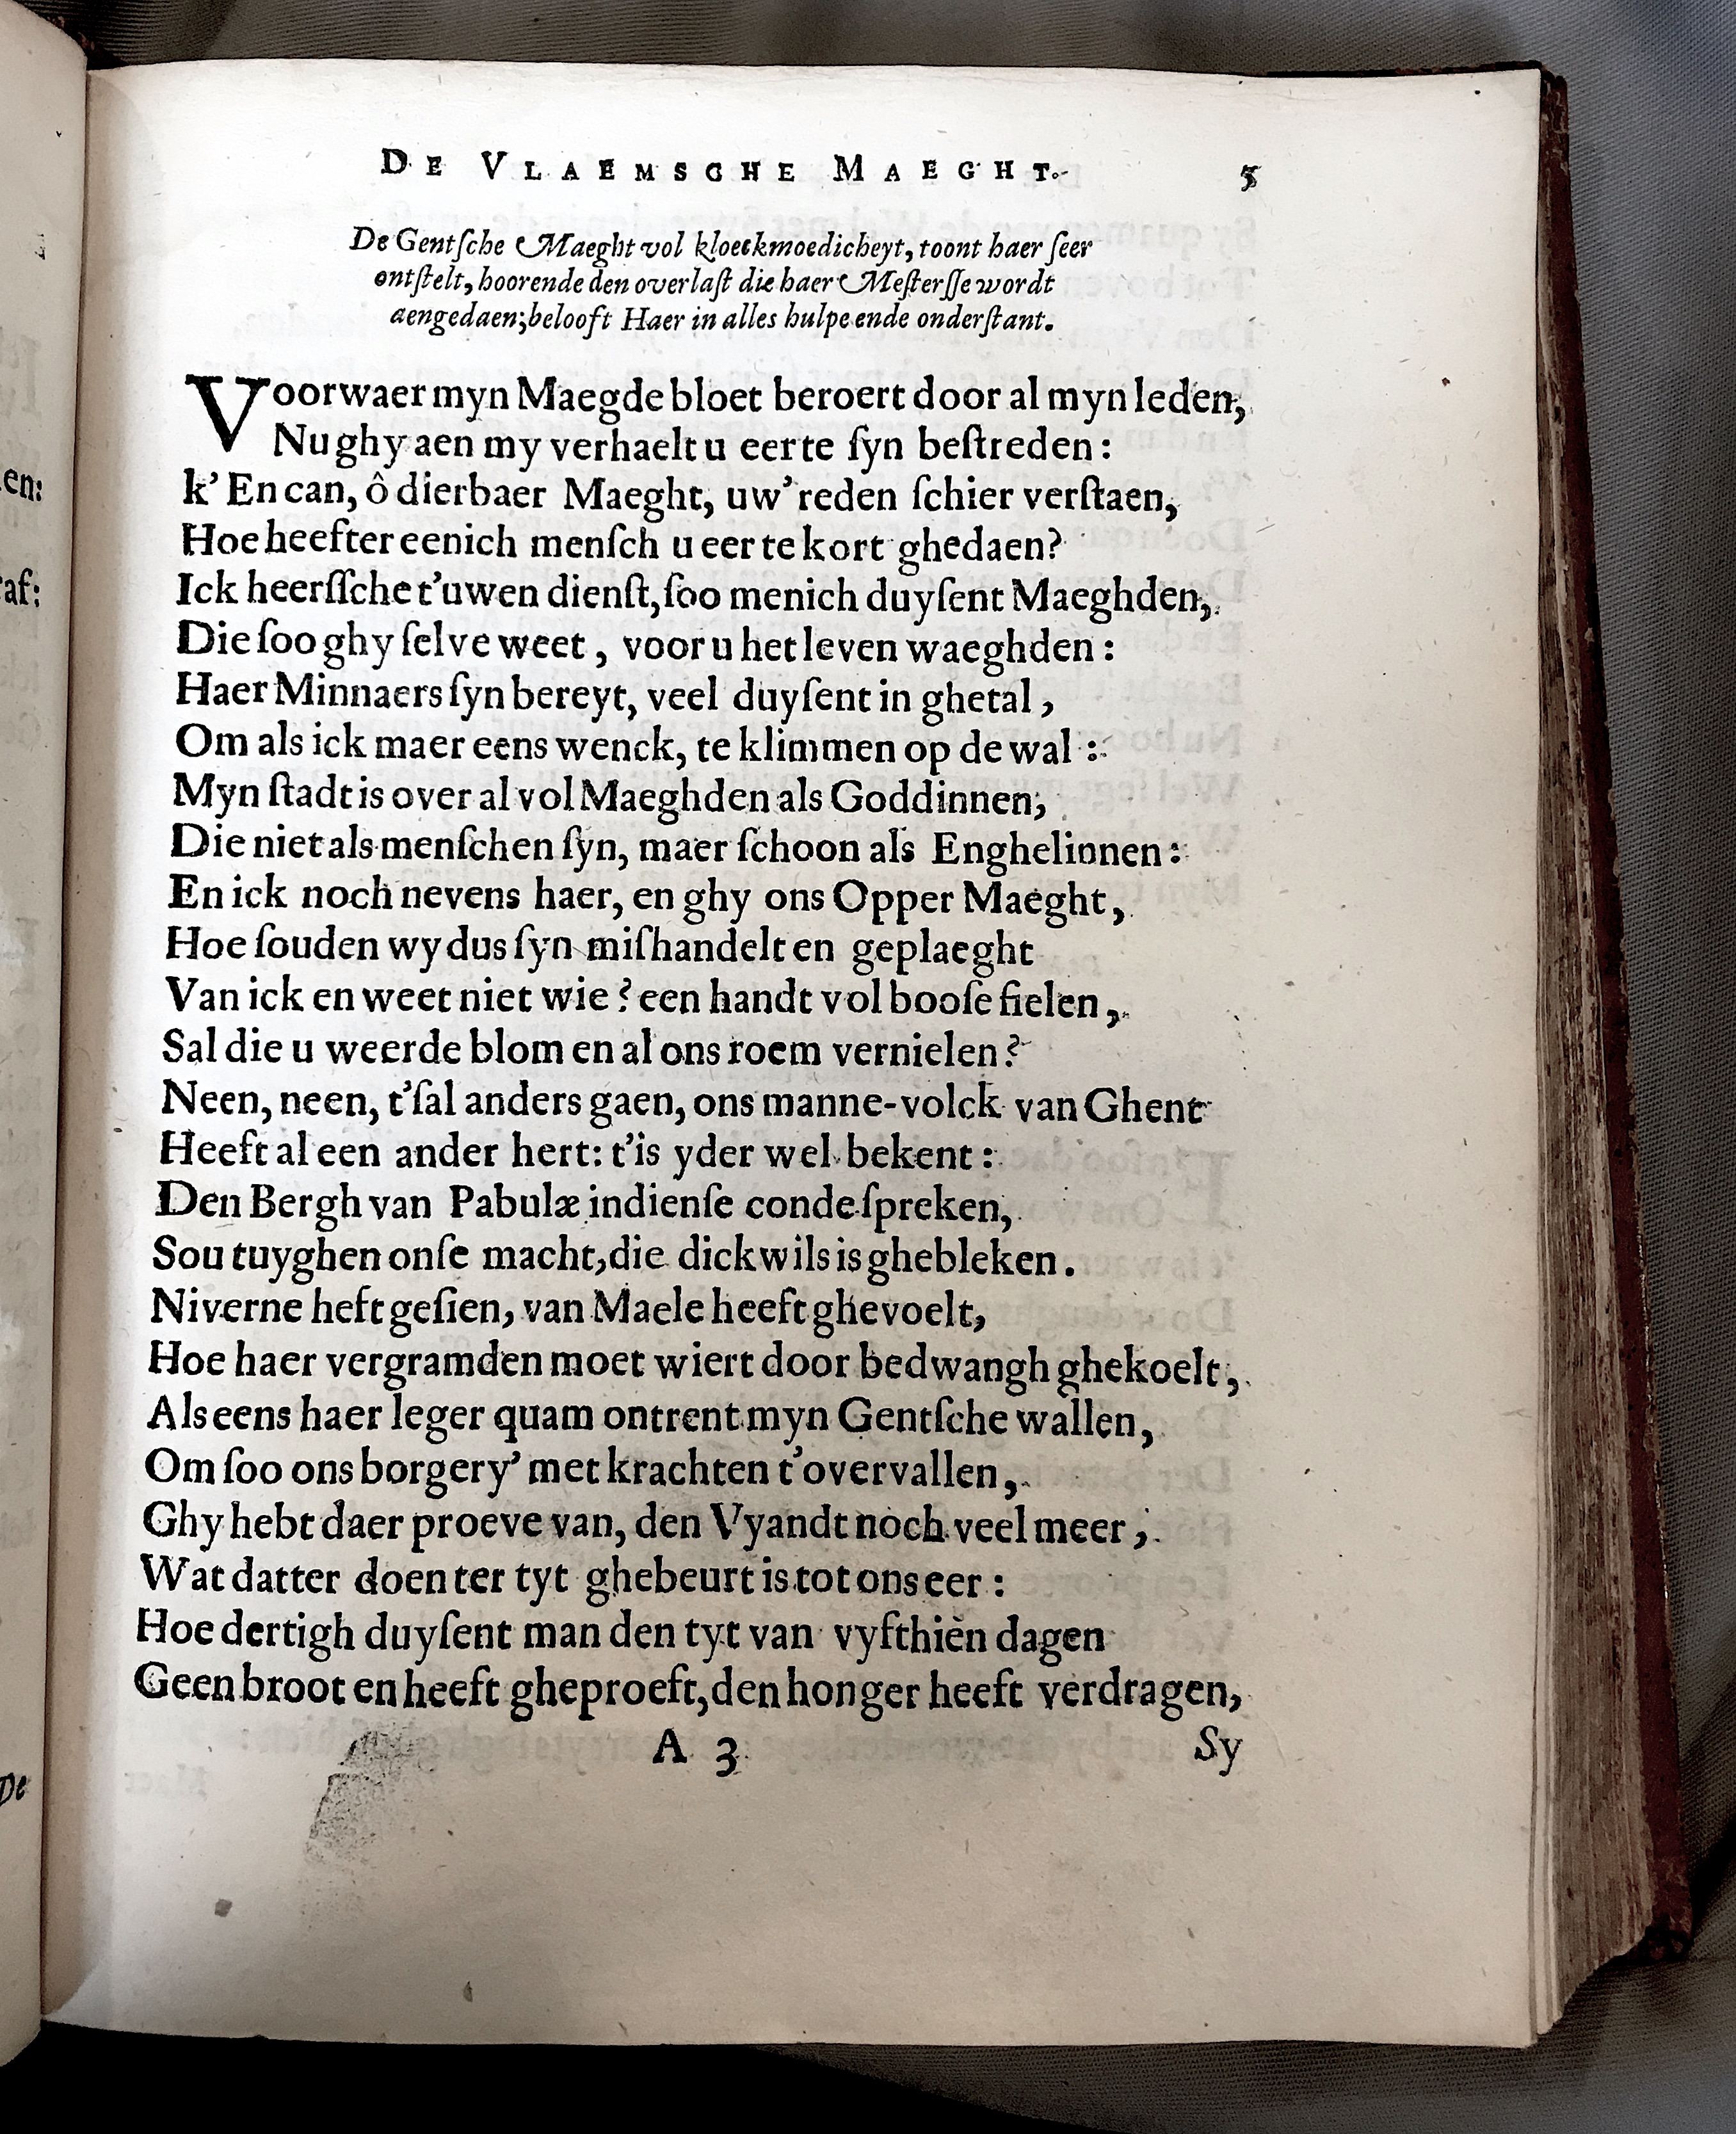 DE VLAEMSCHE MAEGHT. 5
De Gentſche Maeght vol kloeckmoedicheyt, toont haer ſeer
ontſtelt, hoorende den overlaſt die haer Meſterſſe wordt
aengedaen; belooft Haer in alles hulpe ende onderſtant.
Voorwaer myn Maegde bloet beroert door al myn leden,
Nu ghy aen my verhaelt u eer te ſyn beſtreden:
k' En can, ô dierbaer Maeght, uw' reden ſchier verſtaen,
Hoe heefter eenich menſch u eer te kort ghedaen?
Ick heerſſche t'uwen dienſt, ſoo menich duyſent Maeghden,
Die ſoo ghy ſelve weet, voor u het leven waeghden:
Haer Minnaers ſyn bereyt, veel duyſent in ghetal,
Om als ick maer eens wenck, te klimmen op de wal:
Myn ſtadt is over al vol Maeghden als Goddinnen,
Die niet als menſchen ſyn, maer ſchoon als Enghelinnen:
En ick noch nevens haer, en ghy ons Opper Maeght,
Hoe ſouden wy dus ſyn miſhandelt en geplaeght
Van ick en weet niet wie? een handt vol booſe fielen,
Sal die u weerde blom en al ons roem vernielen?
Neen, neen, t'ſal anders gaen, ons manne-volck van Ghent
Heeft al een ander hert: t'is yder wel bekent:
Den Bergh van Pabulæ indienſe conde ſpreken,
Sou tuyghen onſe macht, die dickwils is ghebleken.
Niverne heft geſien, van Maele heeft ghevoelt,
Hoe haer vergramden moet wiert door bedwangh ghekoelt,
Als eens haer leger quam ontrent myn Gentſche wallen,
Om ſoo ons borgery' met krachten t'overvallen,
Ghy hebt daer proeve van, den Vyandt noch veel meer,
Wat datter doen ter tyt ghebeurt is tot ons eer:
Hoe dertigh duyſent man den tyt van vyfthien dagen
Geen broot en heeft gheproeft, den honger heeft verdragen,
A 3 Sy
en:
af:
De